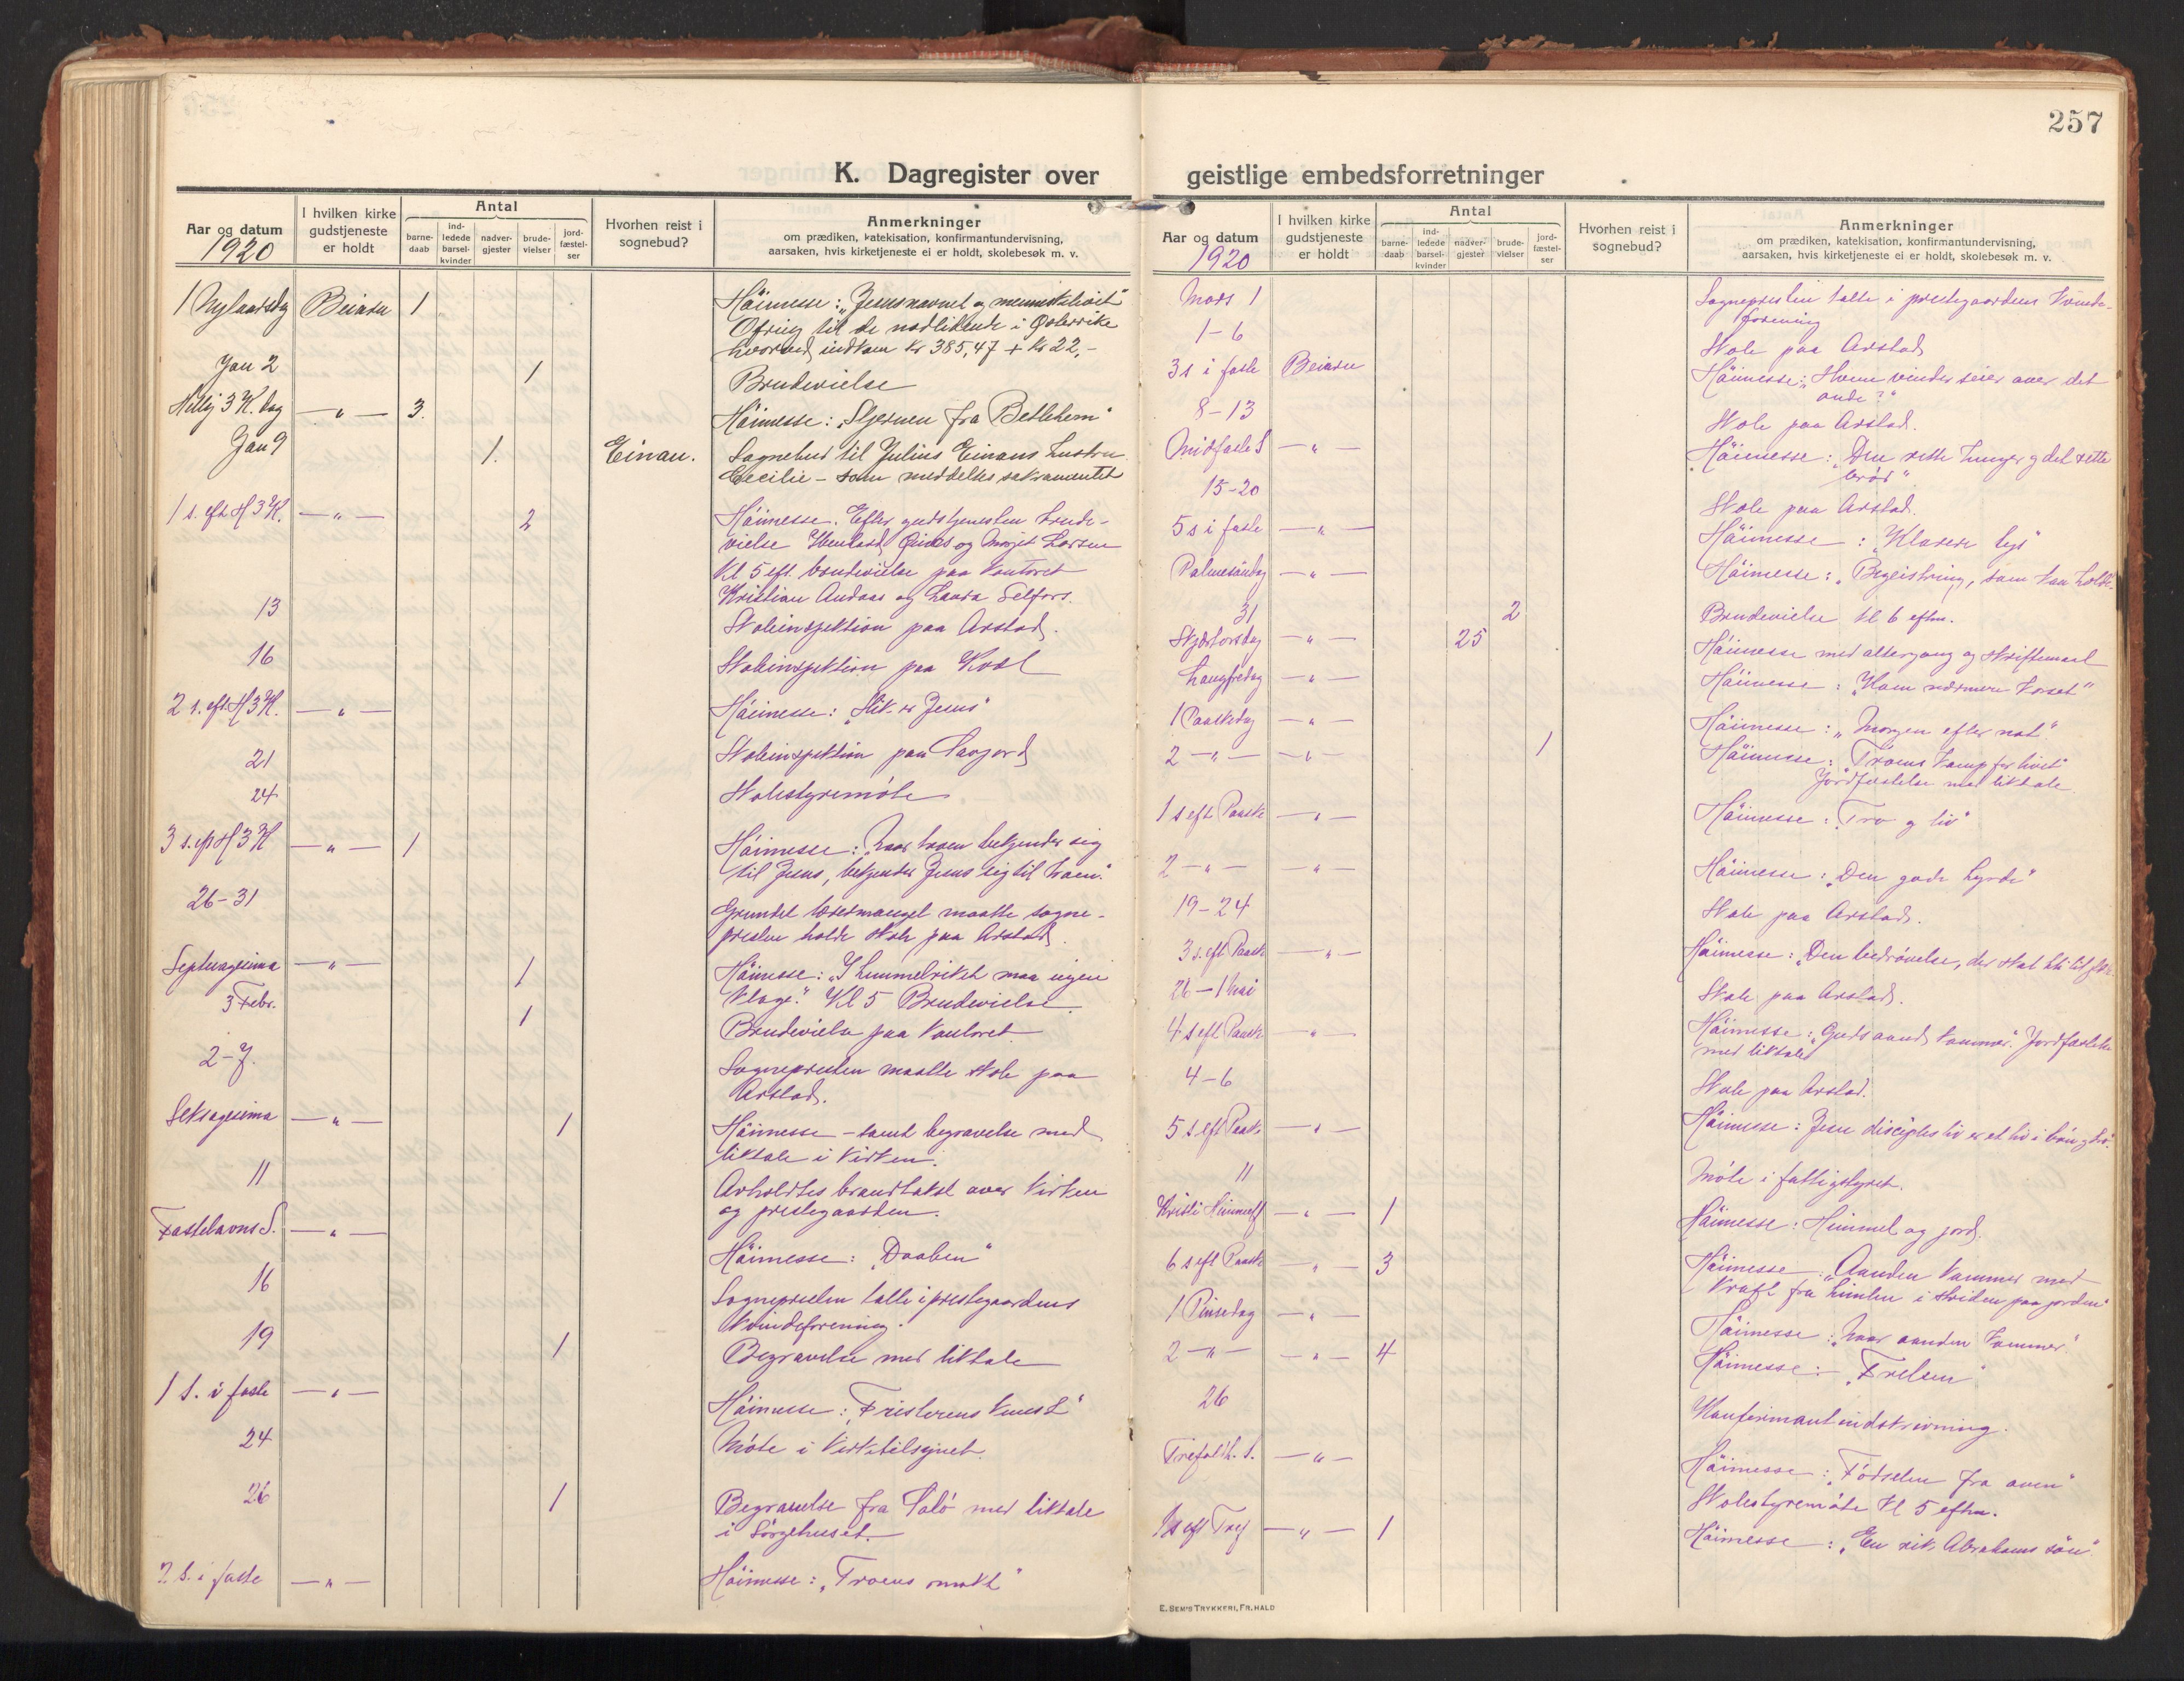 257
K. Dagregister over
Aar og datum
1920
I hvilken kirke gudstjeneste er holdt
Antal
barne-daab
ind-ledede barsel-kvinder
nadver-gjester
brude-vielser
jord-fæstel-ser
Hvorhen reist i sognebud?
Anmerkninger
om prædiken, katekisation, konfirmantundervisning,
aarsaken, hvis kirketjeneste ei er holdt, skolebesøk m. v.
1 Nytaarsdag Beiarn 1 Høimesse: „Jesusnavnet og menneskelivet“
Ofring til de nødlidende i Østerrike
hvorved indkom Kr 385,47 + Kr 22,-
Jan 2 1 Brudevielse
Hellig 3 K. dag — „ — 3. Høimesse: „Stjernen fra Betlehem“
Jan 9 1. Einan. Sognebud til Julius Einans hustru
Cecilie – som meddeltes sakramentet
1 s. eft H 3 K. — „ — 2 Høimesse. Efter gudstjenesten brude-
vielse og Larsen
Kl 5 eft. brudevielse paa kontoret
Kristian Andaas og Laura Selfors.
13 Skoleinspektion paa Arstad.
16 Skoleinspektion paa Kvæl
2 s. eft. H 3 K. — „ — Høimesse: „Slik er Jesus“
21 Skoleinspektion paa Savjord
24 Skolestyremøte
3 s. eft H 3 K — „ — 1 Høimesse: „Naar troen bekjender sig
til Jesus, bekjender Jesus sig til troen.“
26-31 Grundet læremangel maatte sogne-
presten holde skole paa Arstad.
Septuagesima — „ — 1 Høimesse: „I himmelriket maa ingen
klage.“ Kl 5 Brudevielse.
3 Febr. 1 Brudevielse paa kontoret.
2-7. Sognepresten maatte skole paa
Arstad.
Seksagesima — „ — 1 Høimesse – samt begravelse med
liktale i kirken.
11 Avholdtes brandtakst over kirken
og prestegaarden.
Fastelavns S. — „ — Høimesse: „Daaben“
16 Sognepresten talte i prestegaardens
kvindeforening.
19 1 Begravelse med liktale
1 S. i faste — „ — Høimesse: „Fristerens kunst“
24 Møte i kirketilsynet.
26 1 Begravelse fra Solø med liktale
i sørgehuset.
2 S. i faste — „ — Høimesse: „Troens makt“
geistlige embedsforretninger
Aar og datum
1920
I hvilken kirke gudstjeneste er holdt
Antal
barne-daab
ind-ledede barsel-kvinder
nadver-gjester
brude-vielser
jord-fæstel-ser
Hvorhen reist i sognebud?
Anmerkninger
om prædiken, katekisation, konfirmantundervisning,
aarsaken, hvis kirketjeneste ei er holdt, skolebesøk m. v.
Mars 1 Sognepresten talte i prestegaardens kvinde-
forening
1-6 Skole paa Arstad
3 s i faste Beiarn Høimesse: „Hvem vinder seier over det
onde?“
8-13 Skole paa Arstad.
Midfaste S — „ — Høimesse: „Den rette hunger og det rette
brød“.
15-20 Skole paa Arstad.
5 s i faste — „ — Høimesse: „Klarere lys“
Palmesøndag — „ — Høimesse: „Begeistring, som kan holde
31 2 Brudevielse kl 6 eftm.
Skjærtorsdag — „ — 25 Høimesse med altergang og skriftemaal
Langfredag — „ — Høimesse: „Kom nærmere korset“
1 Paaskedag — „ — Høimesse: „Morgen efter nat.“
2 — „ — — „ — 1 Høimesse: „Troens kamp for livet“
Jordfæstelse med liktale.
1 s eft Paaske — „ — Høimesse: „Tro og liv“
2 — „ — — „ — Høimesse: „Den gode hyrde“
19-24 Skole paa Arstad.
3 s. eft Paaske — „ — Høimesse: „Den bedrøvelse, der skal bli til
26 – 1 Mai Skole paa Arstad.
4 s eft Paaske — „ — Høimesse: „Guds aand kommer.“ Jordfæstelse
med liktale
4-6 Skole paa Arstad.
5 s eft Paaske — „ — Høimesse: Jesu disciples liv er et liv i bøn
11 Møte i fattigstyret.
Kristi Himmelf — „ — 1 Høimesse: Himmel og jord.
6 s eft Paaske — „ — 3 Høimesse: „Aanden kommer med
kraft fra himlen i striden paa jorden“
1 Pinsedag — „ — Høimesse: „Naar aanden kommer.“
2 — „ — — „ — 4 Høimesse: „Frelsen“
26 Konfirmantindskrivning.
Trefoldh. S. — „ — Høimesse: „Fødselen fra oven“
Skolestyremøte kl 5 eftm.
1 s eft Tref — „ — 1 Høimesse: „En rik Abrahams søn“.
E. SEM'S TRYKKERI, FR.HALD